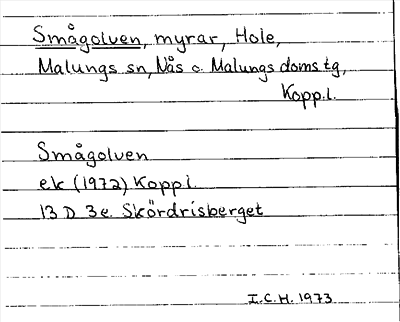 Smågolven, myrar, Hole,
Malungs sn, Nås o. Malungs doms tg,
Kopp.l.
Smågolven
ek (1972) Kopp l.
13 D 3e. Skördrisberget
I.C.H. 1973